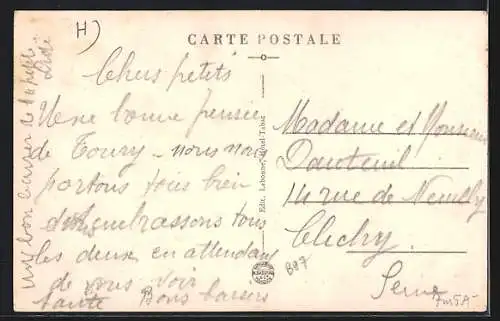 H)
CARTE POSTALE
Chers petits
Une bonne pensée
de Toury - nous nous
portons tous bien
embrassons tous
les deux en attendant
de vous voir
tante Bons baisers
un bon baiser de la petite
Edit. Lebonne, Hôtel-Tabac
Madame et Monsieur
Dauteuil
14 rue de Neuilly
Clichy
Seine
897